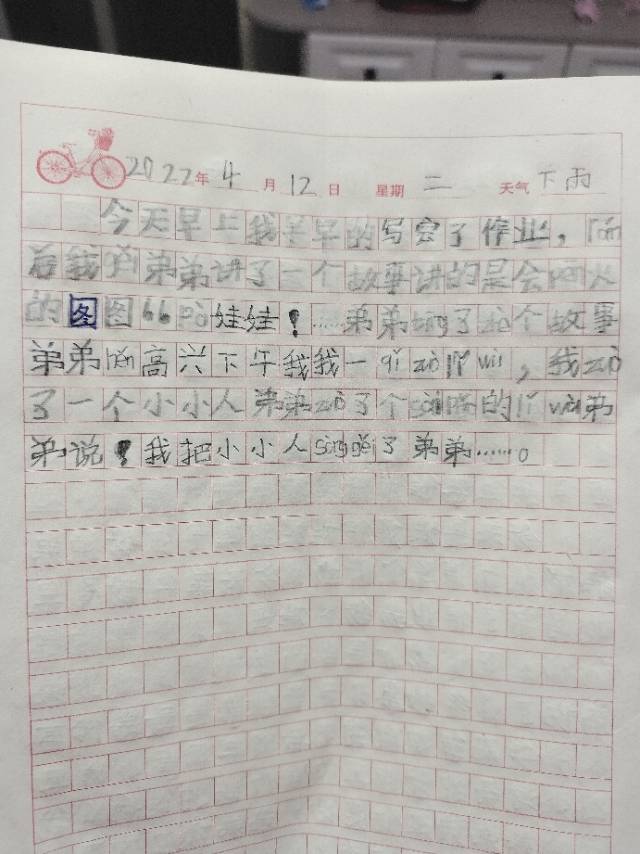 2022年 4 月 12 日 星期 二 天气 下雨
今天早上我早早的写完了作业，rán
后我 弟弟讲了一个故事讲的是会 火
的图图 娃娃！……弟弟 了 个故事
弟弟hěn高兴下午我我一qǐ zuò lǐ wù，我zuò
了一个小小人弟弟zuò了个 的lǐ wù弟
弟说！我把小小人sòng gěi了弟弟……。